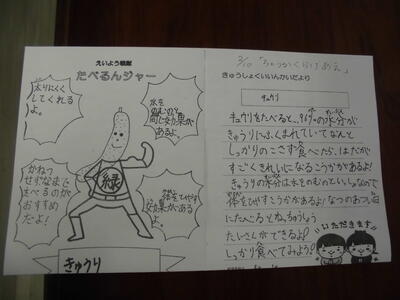 えいよう戦隊
たべるんジャー
太りにくく
してくれる
よ。
水を
のむのと
同じ効果が
あるよ。
かねつ
せずなまで
たべるのが
おすすめ
だよ!
体をひやす
効果がある
よ。
緑
きゅうり
きゅうしょくいいんかいだより
キュウリ
キュウリをたべると、の水分が
きゅうりにふくまれていてなんと
しっかりのこさず食べたら、はだが
すごくきれいになるこうかがあるよ!
きゅうりの水分は水をのむのといっしょなので
体をひやすこうかがあるよ!なつのあつい
にたべるとねっちゅうしょう
たいさくができるよ!
しっかり食べてみよう!
いただきます